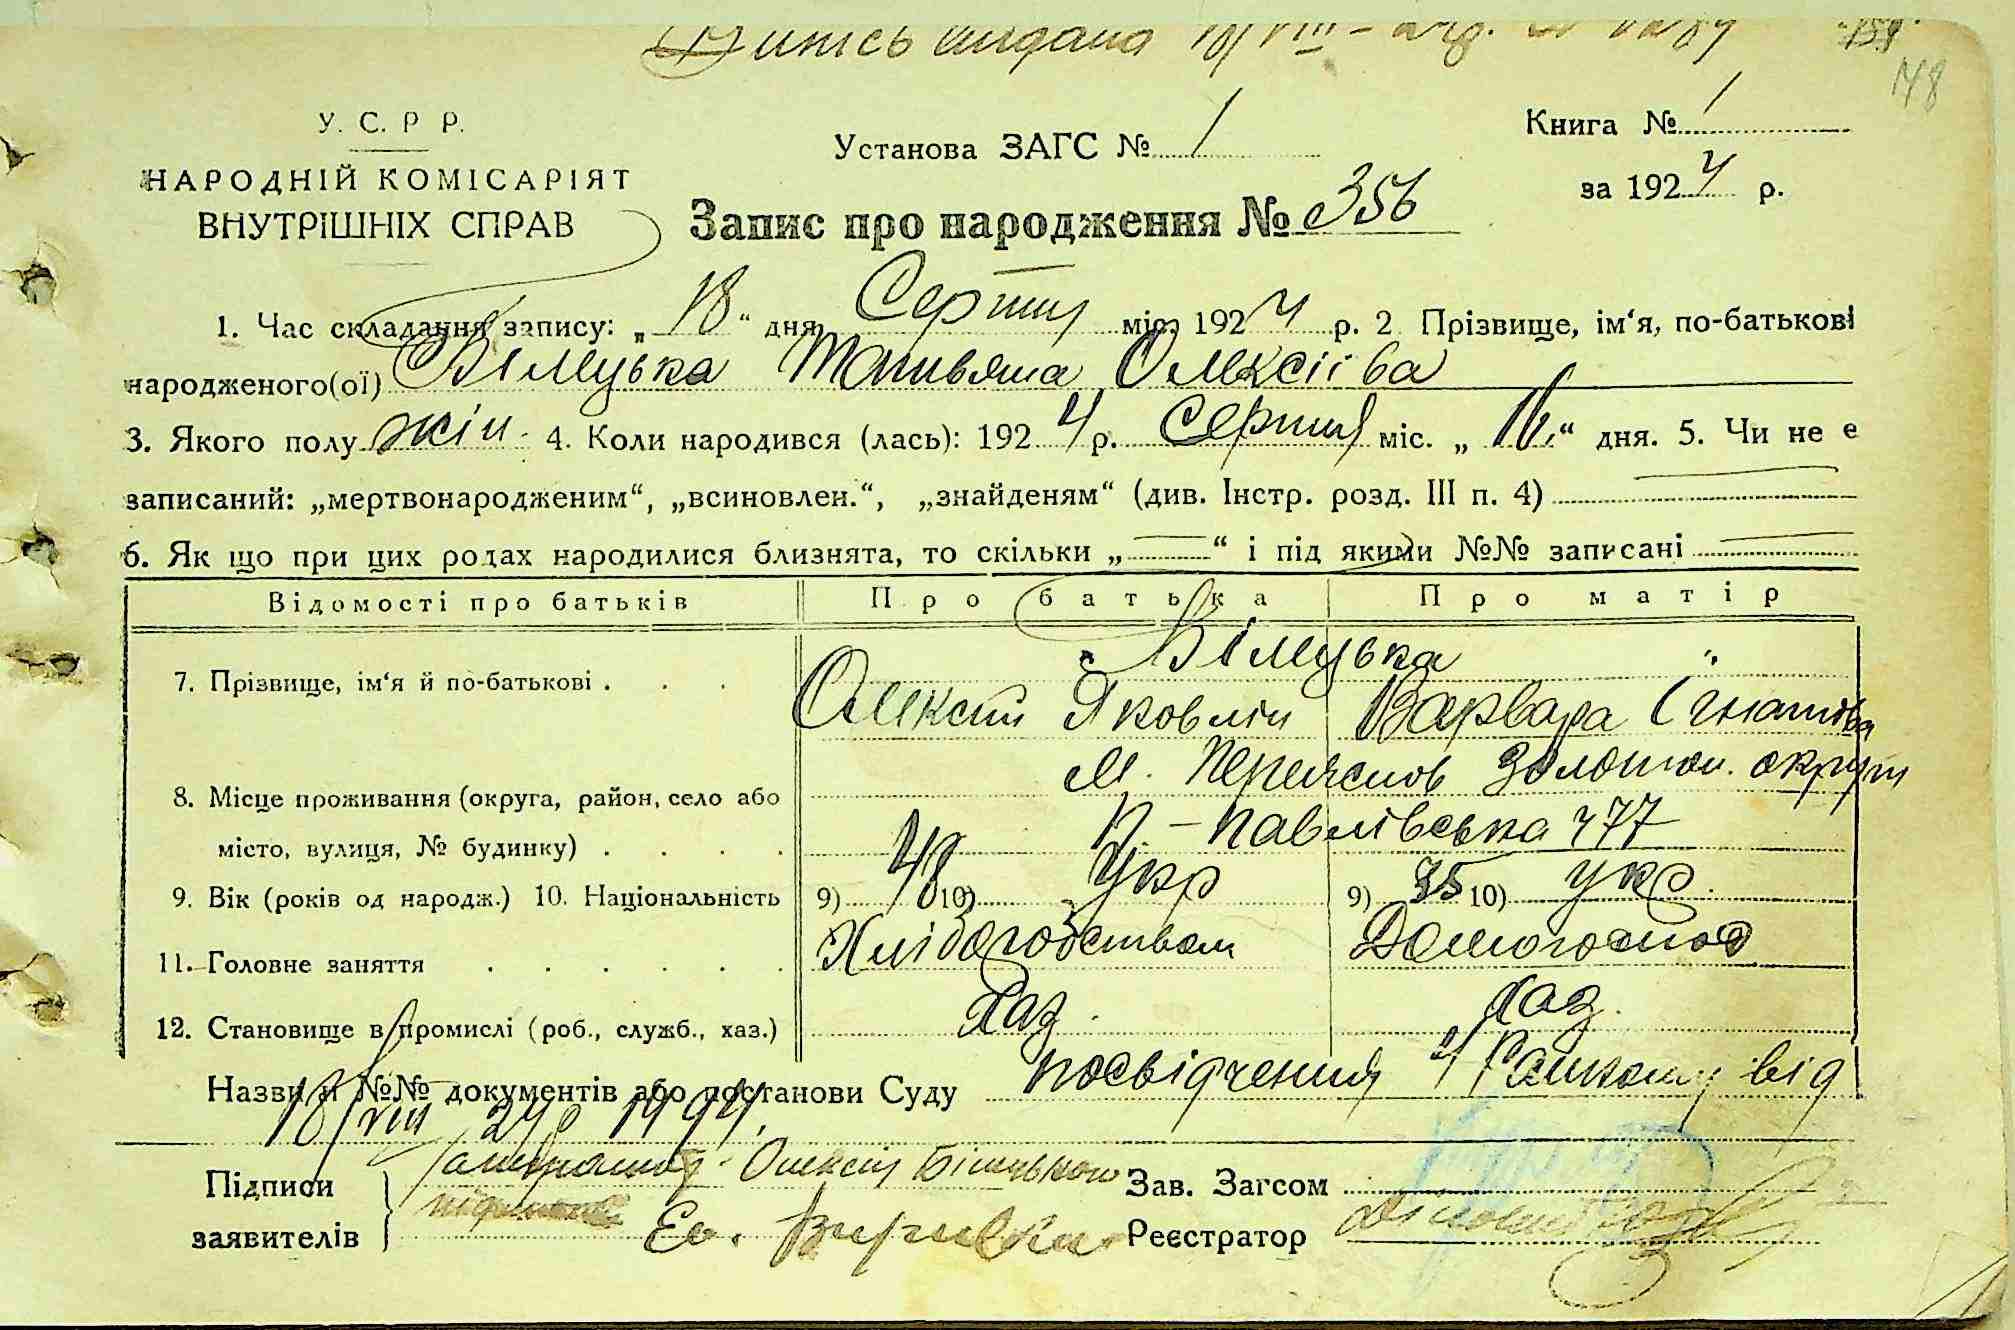 Витсь видана 18/VIII – 24р.
148
У. С. Р. Р.
НАРОДНІЙ КОМІСАРІЯТ
ВНУТРІШНІХ СПРАВ
Установа ЗАГС № 1
Книга № 1
за 1924 р.
Запис про народження № 356
1. Час складання запису: „18“ дня Серпня міс. 1924 р. 2 Прізвище, ім‘я, по-батькові
народженого(ої) Білецька Татьяна Олексіїва
3. Якого полу жін. 4. Коли народився (лась): 1924 р. Серпня міс. „16“ дня. 5. Чи не є
записаний: „мертвонародженим“, „всиновлен.“, „знайденям“ (див. Інстр. розд. III п. 4)
6. Як що при цих родах народилися близнята, то скільки „—“ і під якими №№ записані —
Відомості про батьків Про батька Про матір
Білецька "
7. Прізвище, ім‘я й по-батькові . . . Олексій Яковлів Варвара Ігнатіва
8. Місце проживання (округа, район, село або м. Переяслов Золотон. округи
місто, вулиця, № будинку) . . . . П.-Павлівська ч 77
9. Вік (років од народж.) 10. Національність 9) 48 10) Укр 9) 35 10) Укр.
11. Головне заняття . . . . . . Хліборобством Домогоспод
12. Становище в промислі (роб., служб., хаз.) Хаз. Хаз.
Назви й №№ документів або постанови Суду посвідчення 4 Райкому від
18/VIII 24р
Підписи Олексій Білецького Зав. Загсом
заявителів Реєстратор